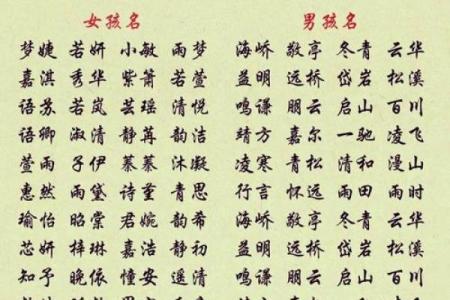 女孩名 男孩名
梦婕 若妍 小敏 雨梦 海峤 敬亭 冬青 云华
嘉淇 秀华 紫萧 若萱 益明 远桥 岱岩 松溪
语苏 若岚 芸瑶 清悦 鸣谦 朋云 启山 百川
语卿 淑清 静苒 韵洁 靖方 嘉尔 一驰 凌飞
萱雨 子伊 慕慕 沐凝 凌寒 青松 清和 漫山
惠然 雨黛 诗莹 青思 行言 怀远 雨田 雨时
瑜怡 昭棠 君婉 韵希 海峤 敬亭 冬青 云华
芯妍 梓琳 嘉浩 静初 益明 远桥 岱岩 松溪
知予 晚依 憧安 遥清 鸣谦 朋云 启山 百川